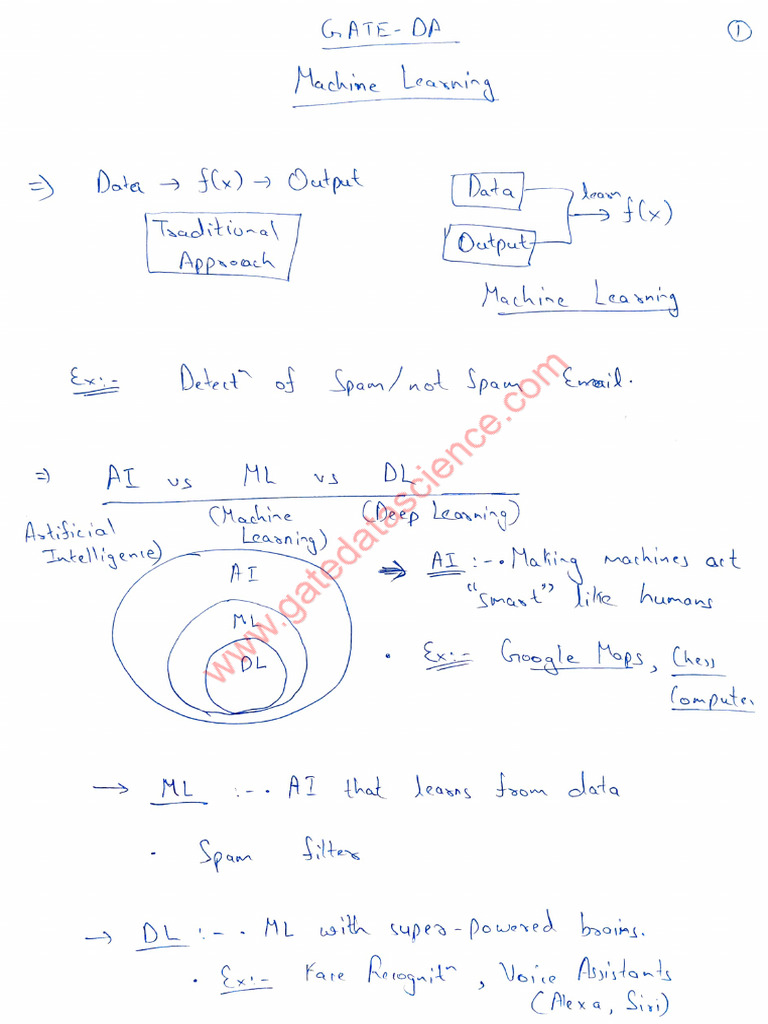 GATE-DA
①
Machine Learning
⇒ Data → f(x) → Output
Traditional
Approach
Data
Output
learn
→ f(x)
Machine Learning
Ex:- Detectⁿ of Spam/not Spam Email.
⇒ AI vs ML vs DL
Artificial
Intelligence)
(Machine
Learning)
(Deep Learning)
AI
ML
DL
→ AI :- • Making machines act
"smart" like humans
• Ex:- Google Maps, Chess
Computer
→ ML :- • AI that learns from data
• Spam filter
→ DL :- • ML with super-powered brains.
• Ex:- Face Recognitⁿ, Voice Assistants
(Alexa, Siri)
www.gatedatascience.com